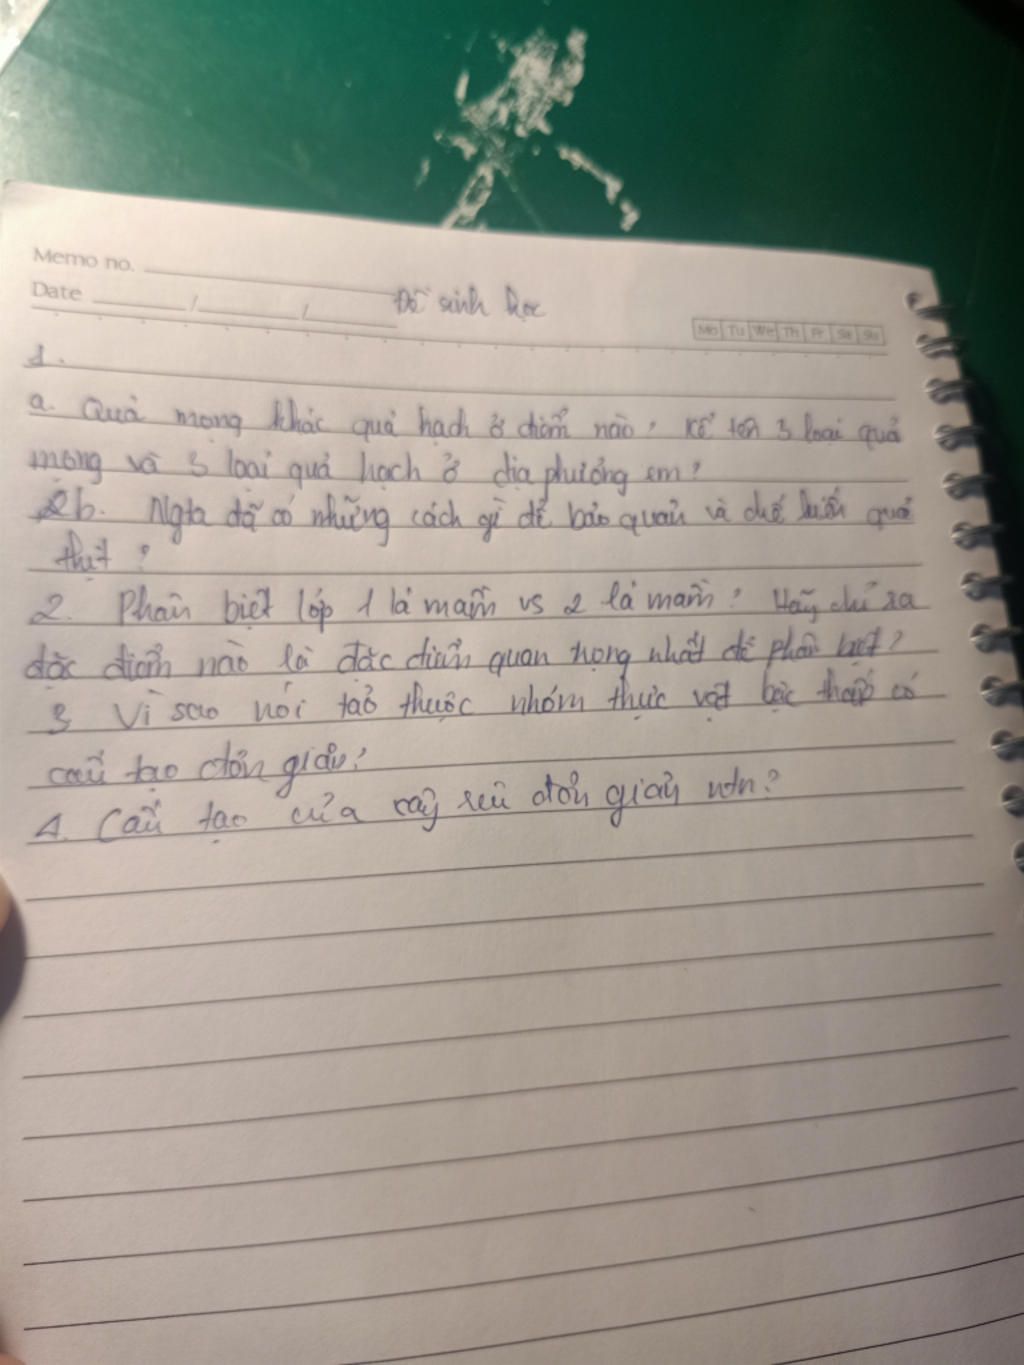 Memo no.
Date / /
Đề sinh học
Mo Tu We Th Fr Sa Su
1.
a. Quả mọng khác quả hạch ở điểm nào? Kể tên 3 loại quả
mọng và 3 loại quả hạch ở địa phương em?
b. Ngta đã có những cách gì để bảo quản và chế biến quả
thịt?
2. Phân biệt lớp 1 lá mầm vs 2 lá mầm? Hãy chỉ ra
đặc điểm nào là đặc điểm quan trọng nhất để phân biệt?
3 Vì sao nói tảo thuộc nhóm thực vật bậc thấp có
cấu tạo đơn giản?
4. Cấu tạo của cây rêu đơn giản ntn?